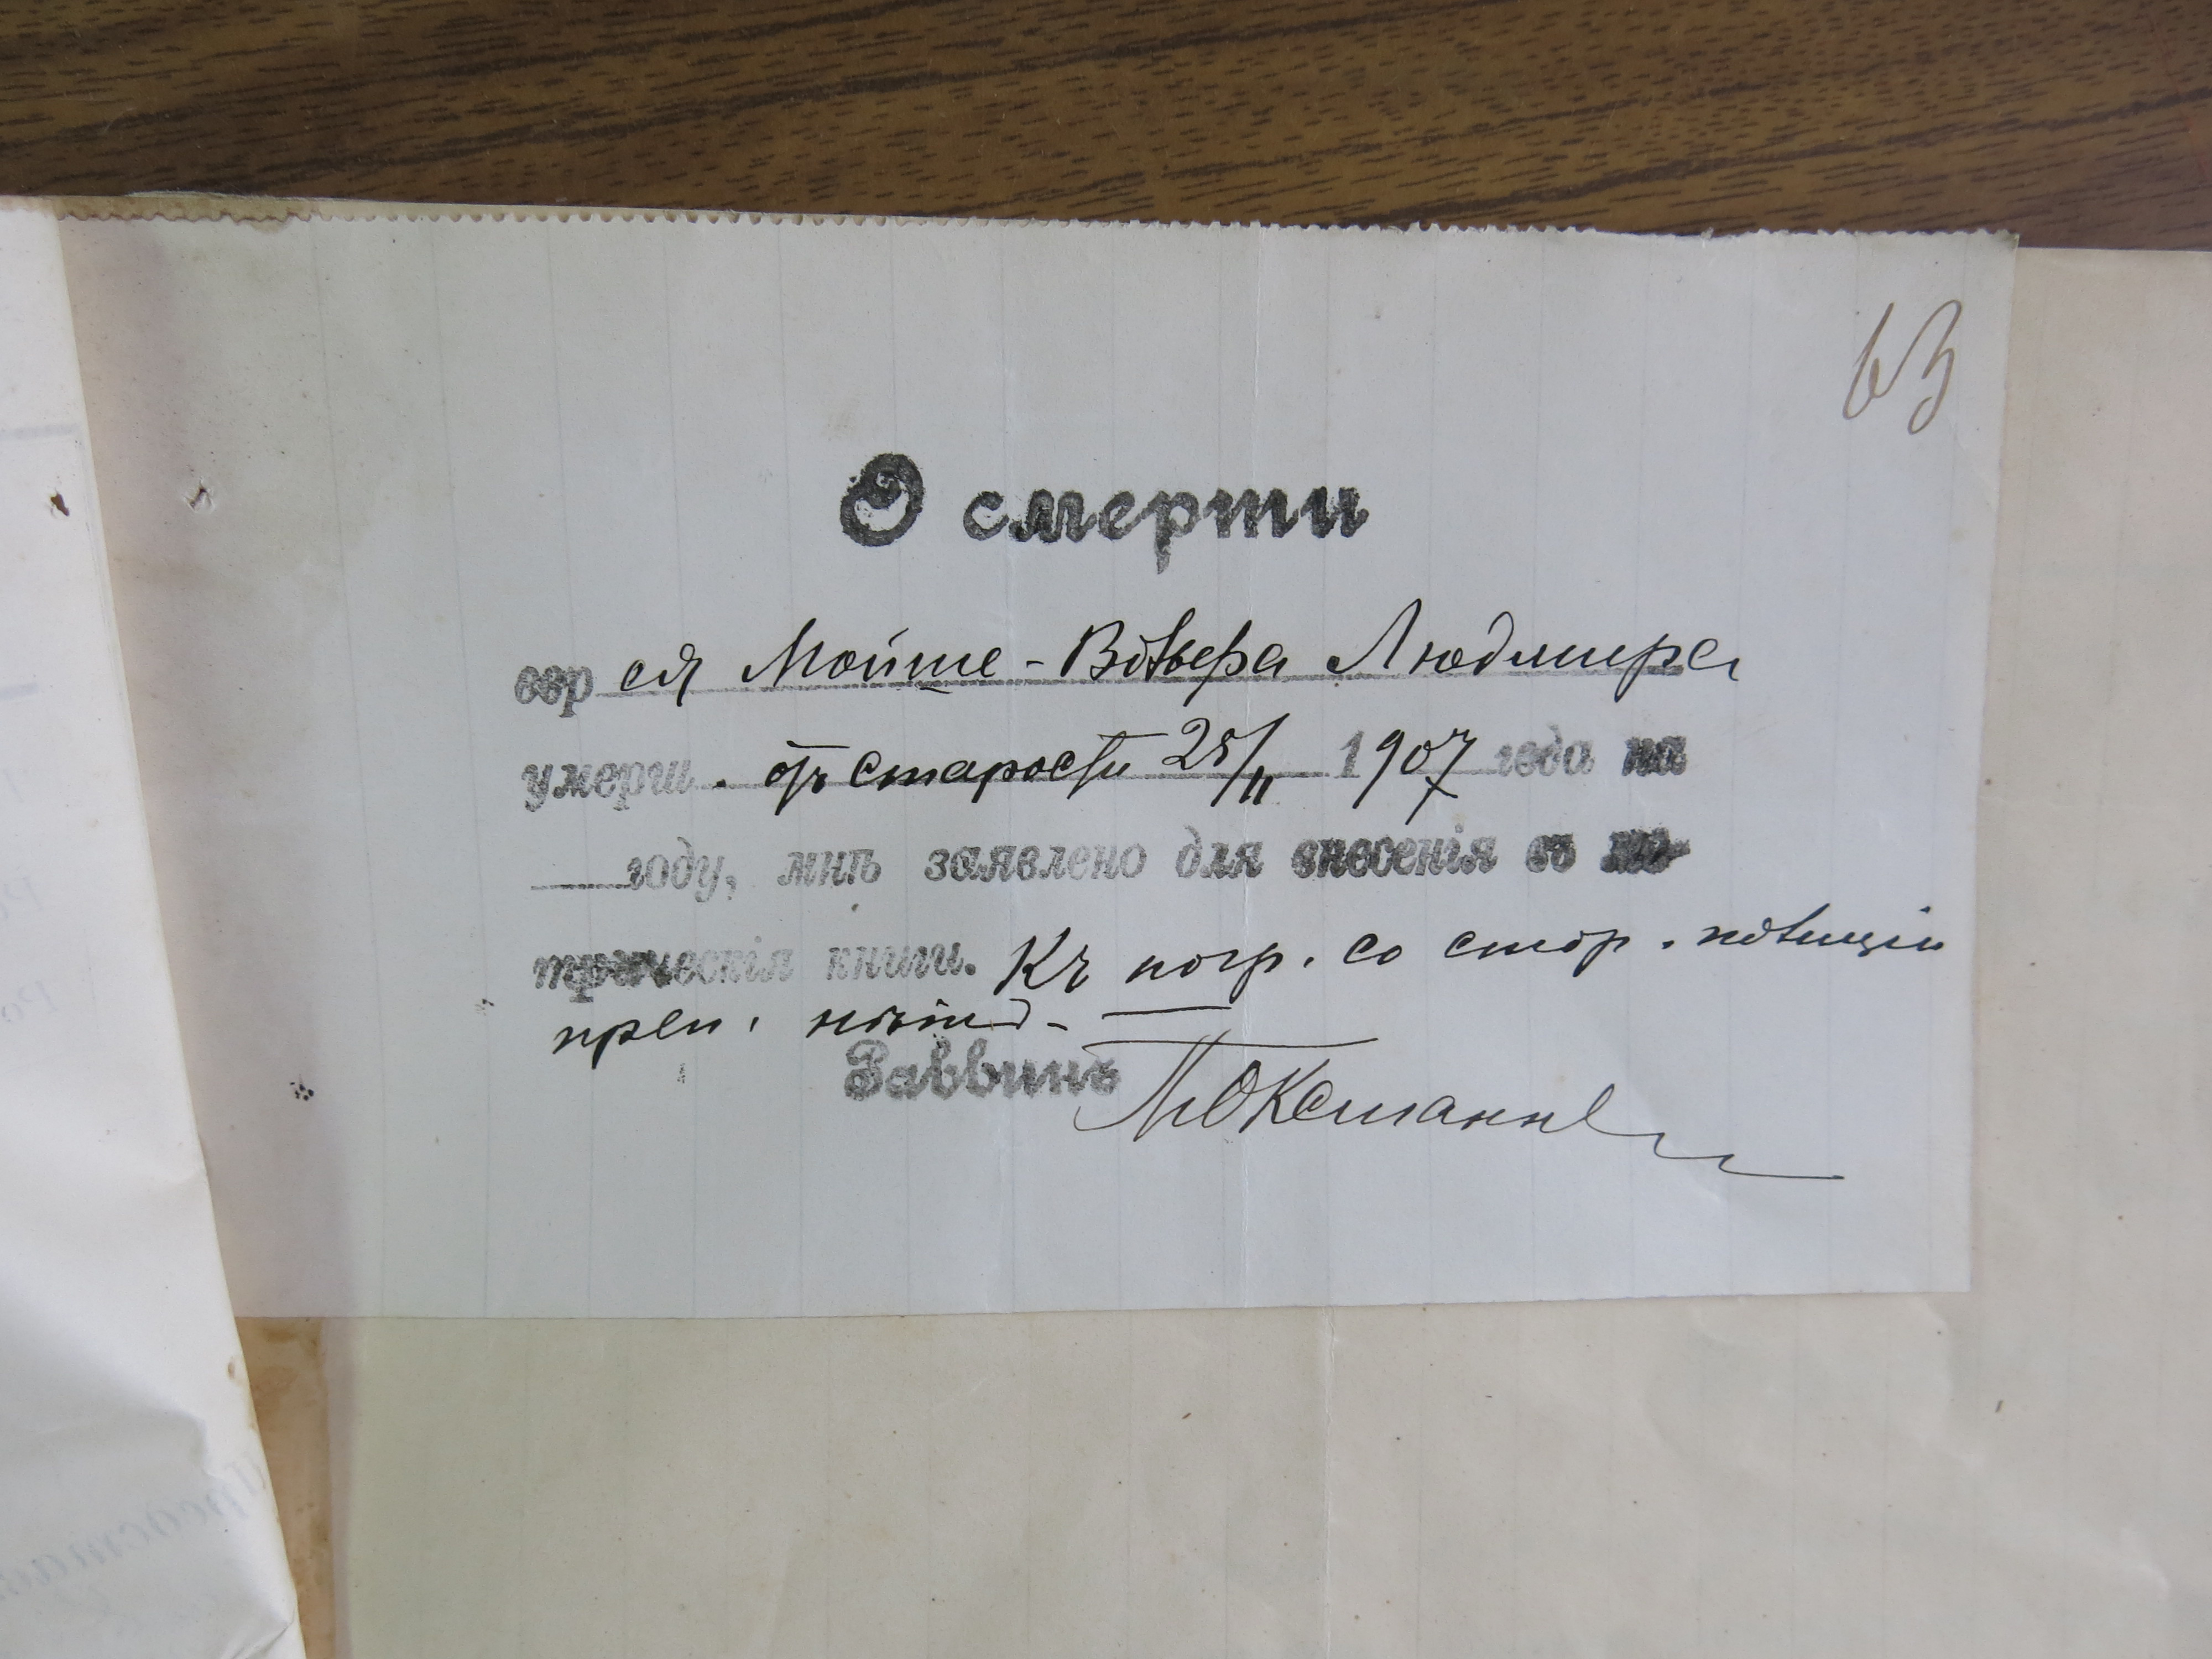 63
О смерти
евр ея Мойше-Вольфа Людмира
умерш. отъ старости 25/II 1907 года на
году, мнѣ заявлено для внесенія въ ме-
трическія книги. Къ погр. со стор. полиціи
преп. нѣтъ
Раввинъ